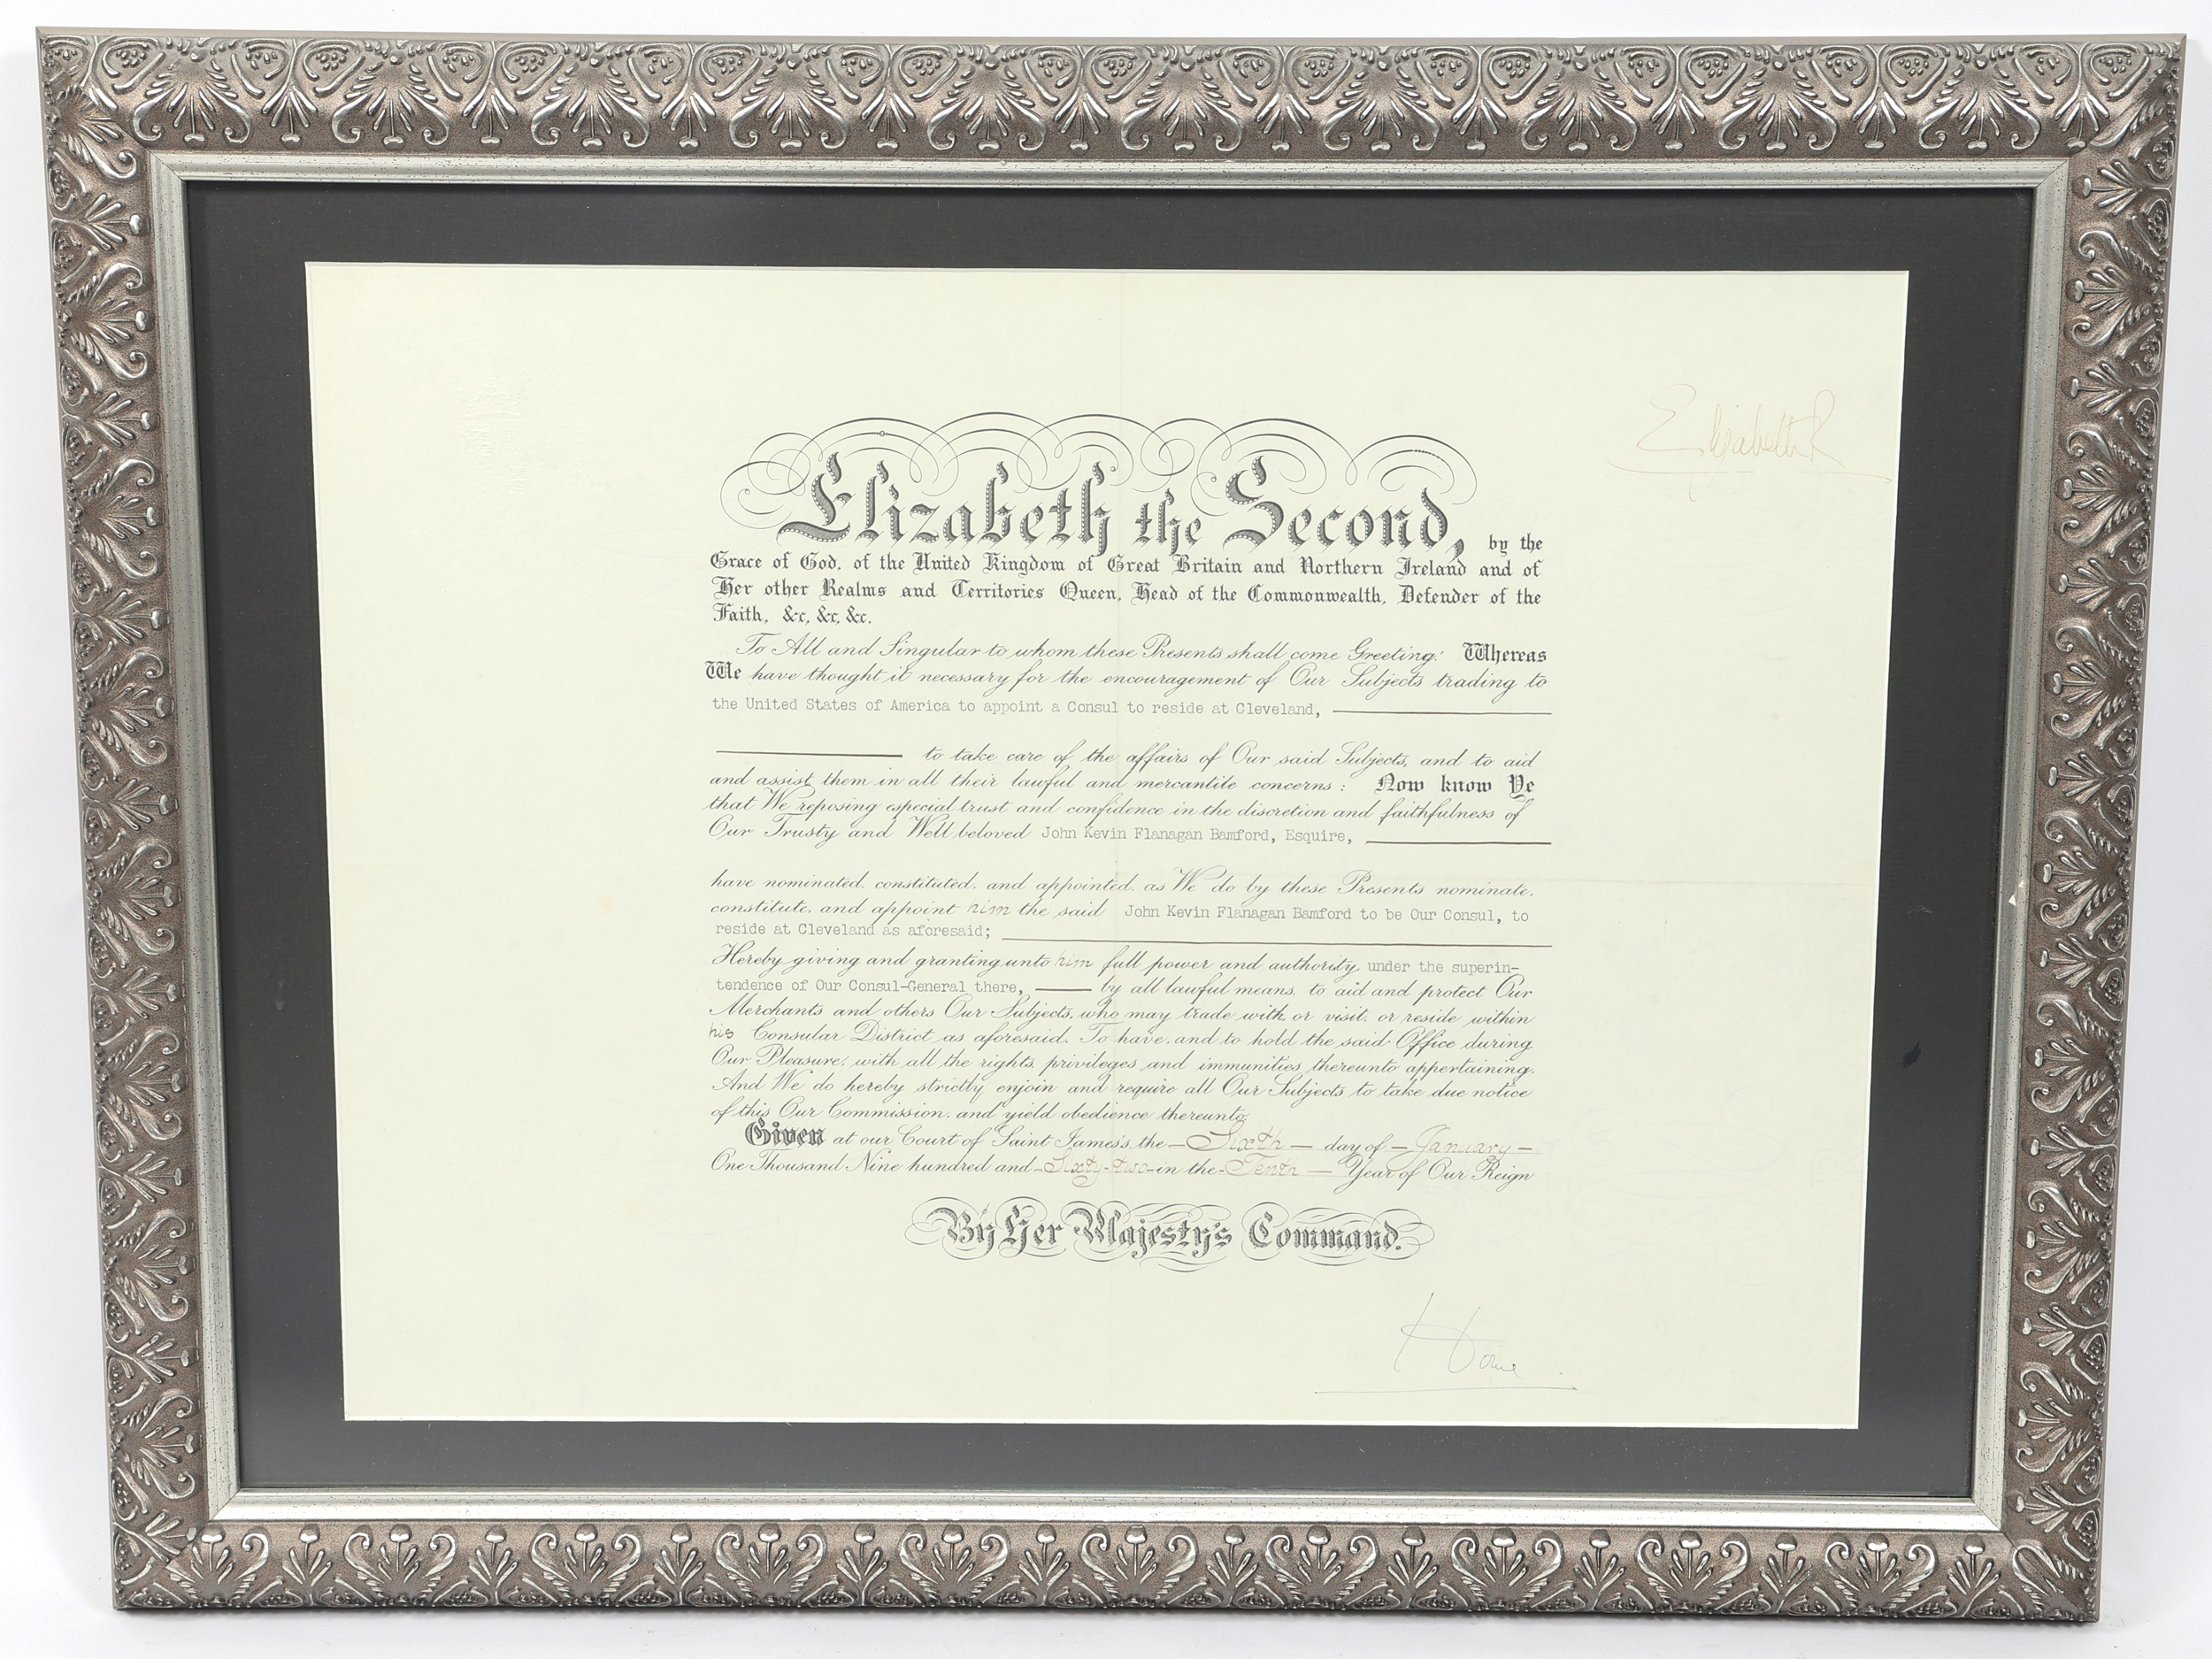 Elizabeth R
Elizabeth the Second, by the
Grace of God, of the United Kingdom of Great Britain and Northern Ireland and of
Her other Realms and Territories Queen, Head of the Commonwealth, Defender of the
Faith, &c, &c, &c.
To All and Singular to whom these Presents shall come Greeting: Whereas
We have thought it necessary for the encouragement of Our Subjects trading to
the United States of America to appoint a Consul to reside at Cleveland,
to take care of the affairs of Our said Subjects, and to aid
and assist them in all their lawful and mercantile concerns: Now know Ye
that We reposing especial trust and confidence in the discretion and faithfulness of
Our Trusty and Well beloved John Kevin Flanagan Bamford, Esquire,
have nominated, constituted, and appointed, as We do by these Presents nominate,
constitute, and appoint him the said John Kevin Flanagan Bamford to be Our Consul, to
reside at Cleveland as aforesaid;
Hereby giving and granting unto him full power and authority, under the superin-
tendence of Our Consul-General there, by all lawful means, to aid and protect Our
Merchants and others Our Subjects, who may trade with, or visit, or reside within
his Consular District as aforesaid. To have, and to hold the said Office during
Our Pleasure, with all the rights, privileges and immunities thereunto appertaining.
And We do hereby strictly enjoin and require all Our Subjects to take due notice
of this Our Commission, and yield obedience thereunto.
Given at our Court of Saint James's, the — Sixth — day of — January —
One Thousand Nine hundred and - Sixty-two - in the - Tenth — Year of Our Reign
By Her Majesty's Command.
Home